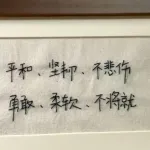 平和、坚韧、不悲伤
勇敢、柔软、不将就